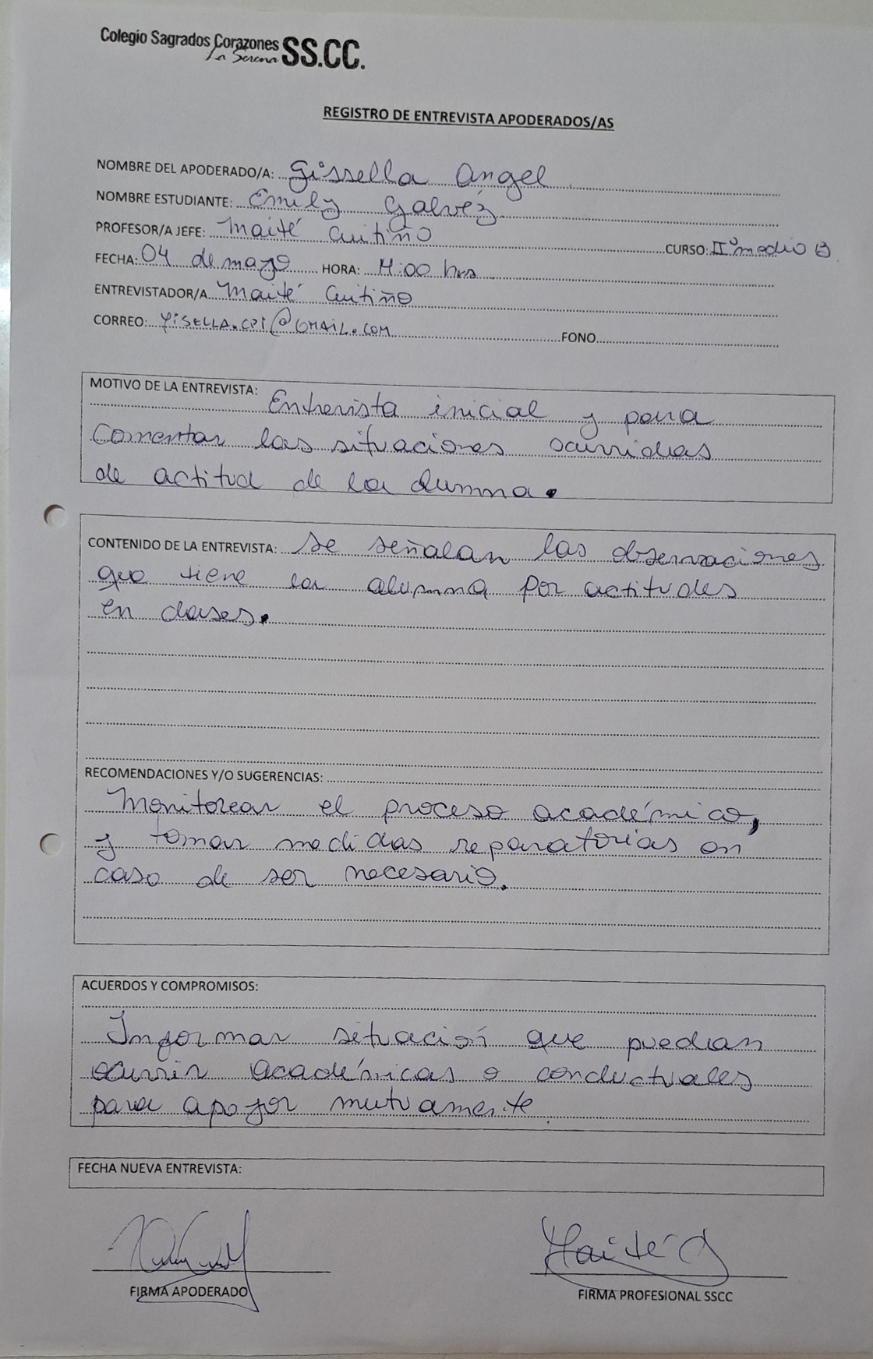 Colegio Sagrados Corazones SS.CC.
La Serena
REGISTRO DE ENTREVISTA APODERADOS/AS
NOMBRE DEL APODERADO/A: Gissella Angel
NOMBRE ESTUDIANTE: Emily Galvez
PROFESOR/A JEFE: Maité Cutiño CURSO: IIº medio B
FECHA: 04 de mayo HORA: :00 hrs
ENTREVISTADOR/A Maité Cutiño
CORREO: YISELLA.CPI@GMAIL.COM FONO
MOTIVO DE LA ENTREVISTA: Entrevista inicial y para
comentar las situaciones ocurridas
de actitud de la alumna.
CONTENIDO DE LA ENTREVISTA: se señalan las observaciones
que tiene la alumna por actitudes
en clases.
RECOMENDACIONES Y/O SUGERENCIAS:
Monitorear el proceso académico,
y tomar medidas reparatorias en
caso de ser necesario.
ACUERDOS Y COMPROMISOS:
Informar situación que puedian
ocurrir académicas o conductuales
para apoyar mutuamente
FECHA NUEVA ENTREVISTA:
Maité C
FIRMA APODERADO FIRMA PROFESIONAL SSCC